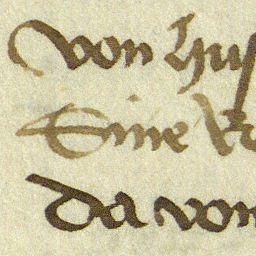 von hus
Eine
da von